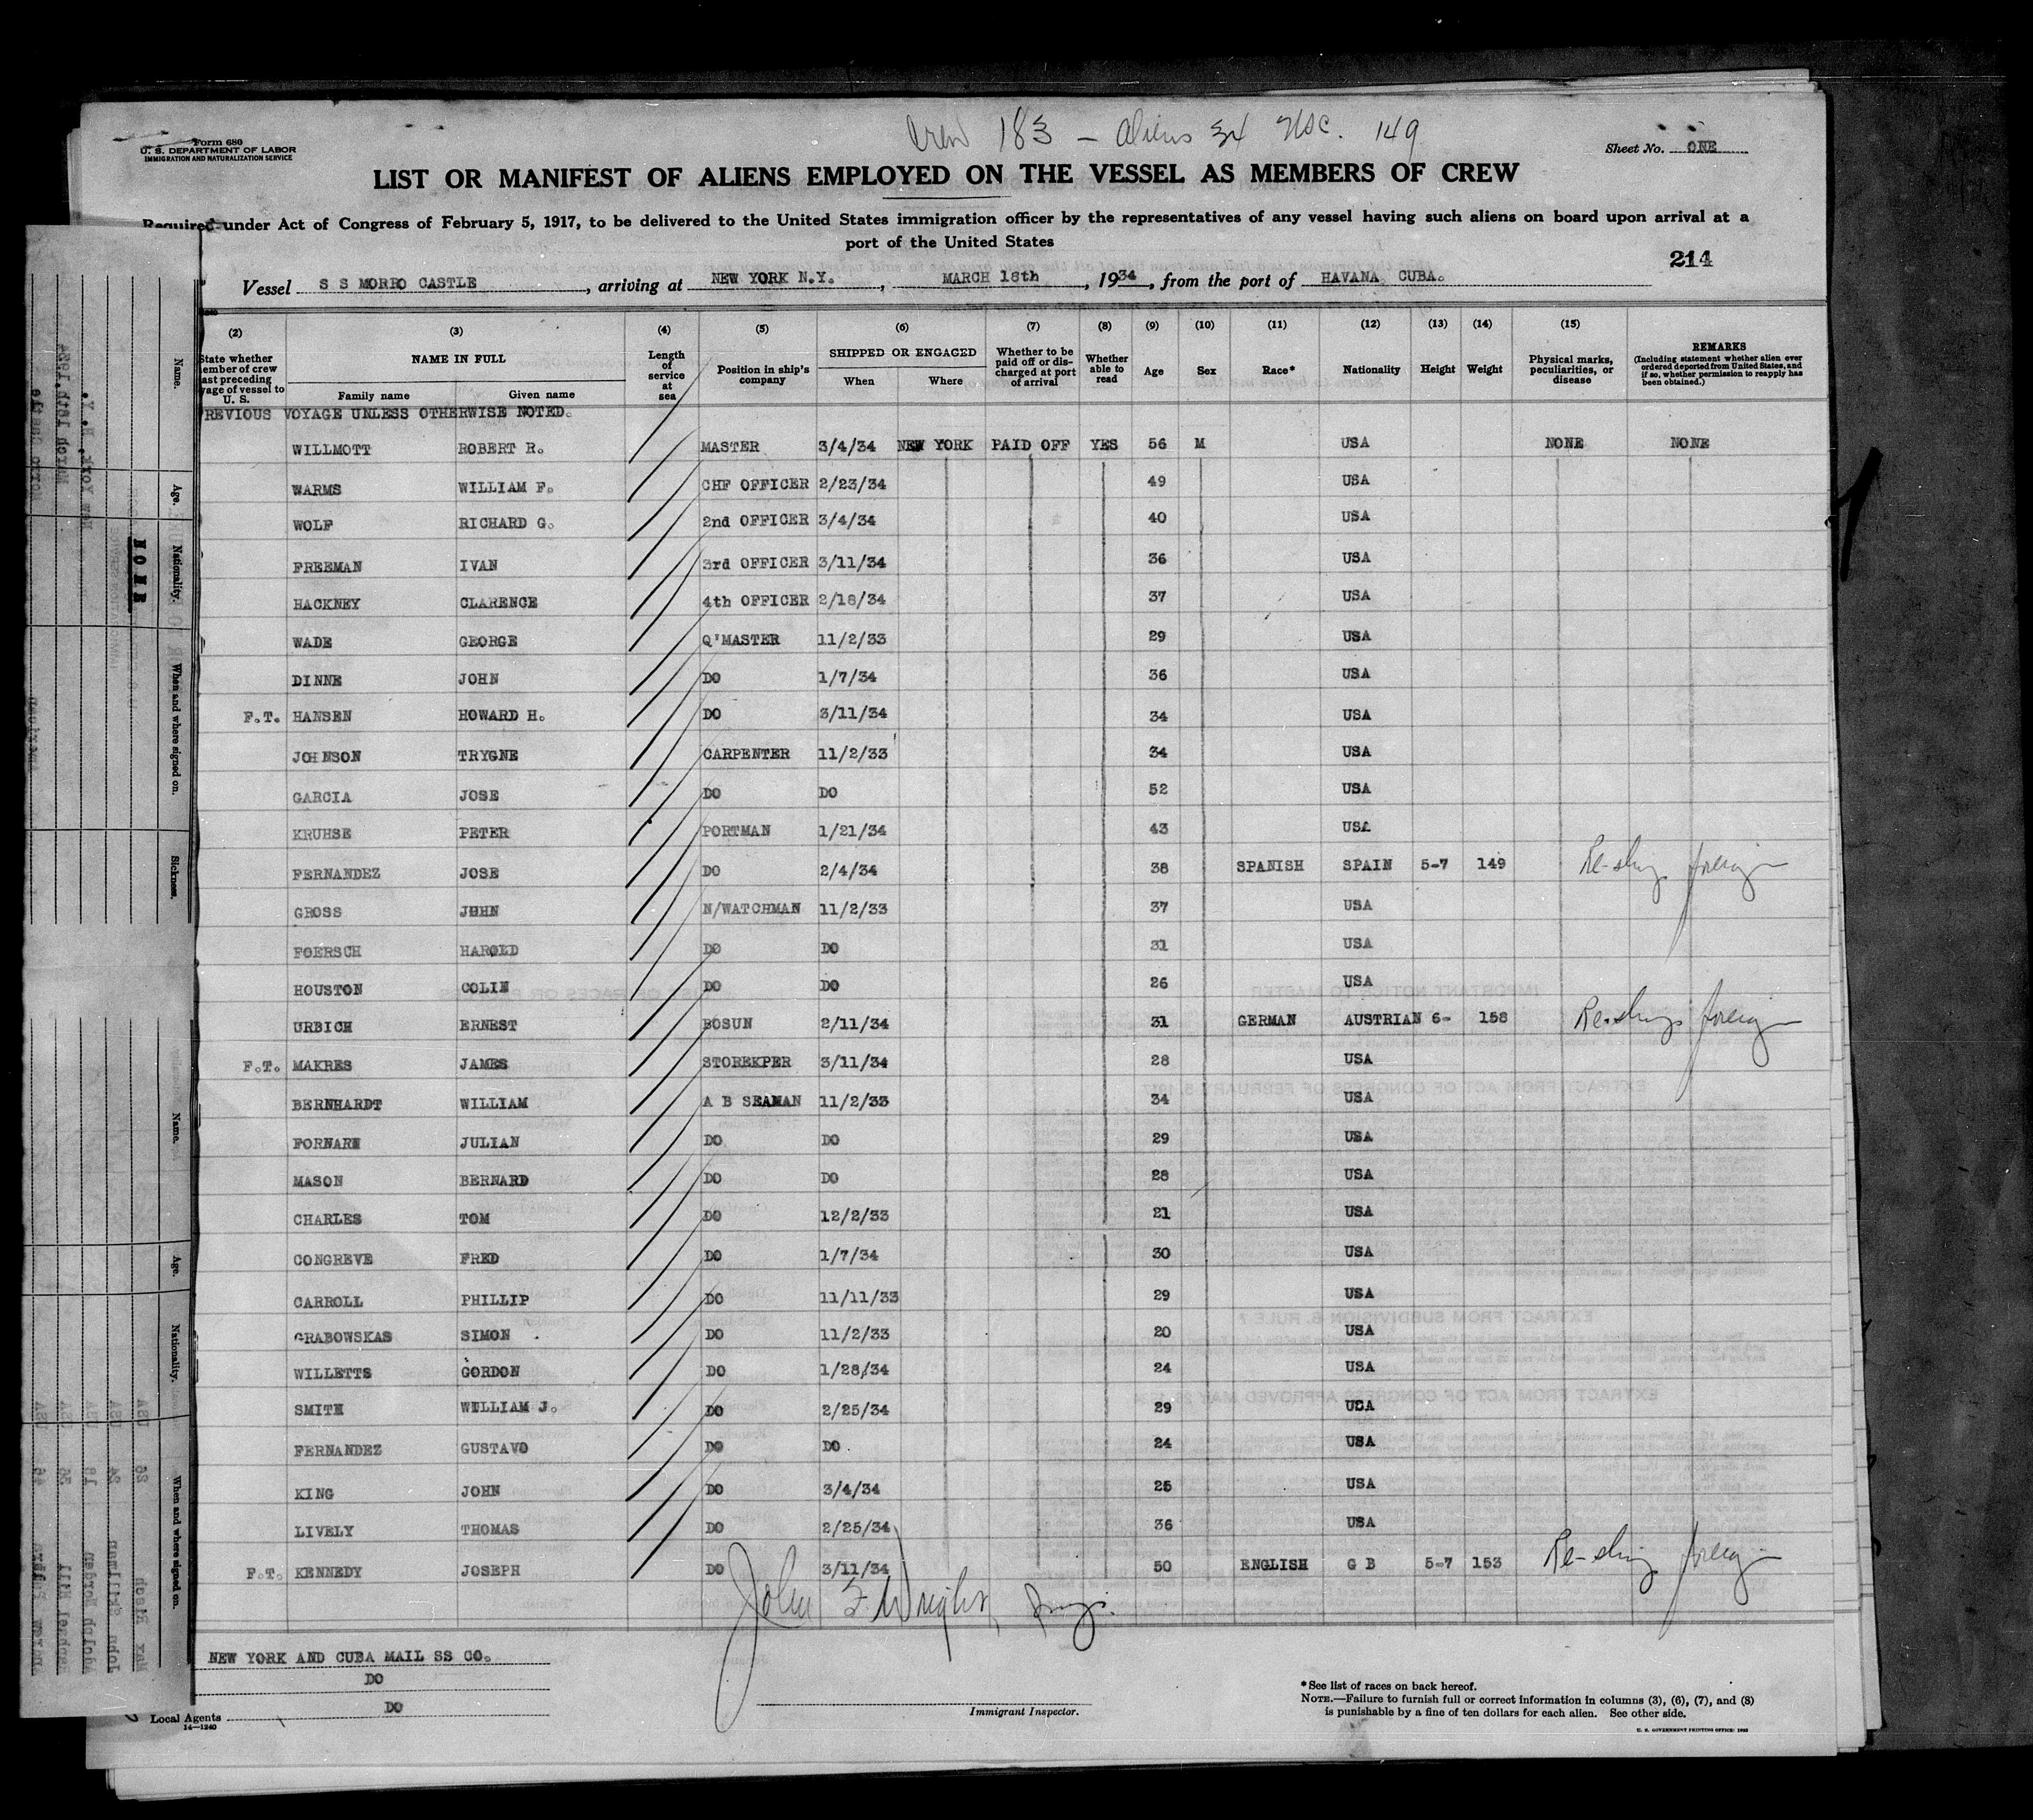 Crew 183 — aliens 34 USC. 149
Form 680
U. S. DEPARTMENT OF LABOR
IMMIGRATION AND NATURALIZATION SERVICE
Sheet No. ONE
LIST OR MANIFEST OF ALIENS EMPLOYED ON THE VESSEL AS MEMBERS OF CREW
Required under Act of Congress of February 5, 1917, to be delivered to the United States immigration officer by the representatives of any vessel having such aliens on board upon arrival at a
port of the United States
214
Vessel S S MORRO CASTLE, arriving at NEW YORK N.Y., MARCH 18th, 1934, from the port of HAVANA CUBA.
(2) (3) (4) (5) (6) (7) (8) (9) (10) (11) (12) (13) (14) (15)
State whether member of crew last preceding voyage of vessel to U. S.
NAME IN FULL
Family name Given name
Length of service at sea
Position in ship's company
SHIPPED OR ENGAGED
When Where
Whether to be paid off or discharged at port of arrival
Whether able to read
Age
Sex
Race*
Nationality
Height
Weight
Physical marks, peculiarities, or disease
REMARKS
(Including statement whether alien ever ordered deported from United States, and if so, whether permission to reapply has been obtained.)
PREVIOUS VOYAGE UNLESS OTHERWISE NOTED.
WILLMOTT ROBERT R. MASTER 3/4/34 NEW YORK PAID OFF YES 56 M USA NONE NONE
WARMS WILLIAM F. CHF OFFICER 2/23/34 49 USA
WOLF RICHARD G. 2nd OFFICER 3/4/34 40 USA
FREEMAN IVAN 3rd OFFICER 3/11/34 36 USA
HACKNEY CLARENCE 4th OFFICER 2/18/34 37 USA
WADE GEORGE Q'MASTER 11/2/33 29 USA
DINNE JOHN DO 1/7/34 36 USA
F.T. HANSEN HOWARD H. DO 3/11/34 34 USA
JOHNSON TRYGNE CARPENTER 11/2/33 34 USA
GARCIA JOSE DO DO 52 USA
KRUHSE PETER PORTMAN 1/21/34 43 USA
FERNANDEZ JOSE DO 2/4/34 38 SPANISH SPAIN 5-7 149 Re-ship foreign
GROSS JOHN N/WATCHMAN 11/2/33 37 USA
FOERSCH HAROLD DO DO 31 USA
HOUSTON COLIN DO DO 26 USA
URBICH ERNEST BOSUN 2/11/34 31 GERMAN AUSTRIAN 6- 158 Re-ship foreign
F.T. MAKRES JAMES STOREKPER 3/11/34 28 USA
BERNHARDT WILLIAM A B SEAMAN 11/2/33 34 USA
FORNARE JULIAN DO DO 29 USA
MASON BERNARD DO DO 28 USA
CHARLES TOM DO 12/2/33 21 USA
CONGREVE FRED DO 1/7/34 30 USA
CARROLL PHILLIP DO 11/11/33 29 USA
GRABOWSKAS SIMON DO 11/2/33 20 USA
WILLETTS GORDON DO 1/28/34 24 USA
SMITH WILLIAM J. DO 2/25/34 29 USA
FERNANDEZ GUSTAVO DO DO 24 USA
KING JOHN DO 3/4/34 25 USA
LIVELY THOMAS DO 2/25/34 36 USA
F.T. KENNEDY JOSEPH DO 3/11/34 50 ENGLISH G B 5-7 153 Re-ship foreign
John F Wright
NEW YORK AND CUBA MAIL SS CO.
DO
Local Agents DO
14—1240
Immigrant Inspector.
*See list of races on back hereof.
NOTE.—Failure to furnish full or correct information in columns (3), (6), (7), and (8)
is punishable by a fine of ten dollars for each alien. See other side.
U. S. GOVERNMENT PRINTING OFFICE: 1933
Name.
Age.
Nationality.
When and where signed on.
Sickness.
NONE
March 18th, 1934
New York, N. Y.
Name.
Age.
Nationality.
When and where signed on.